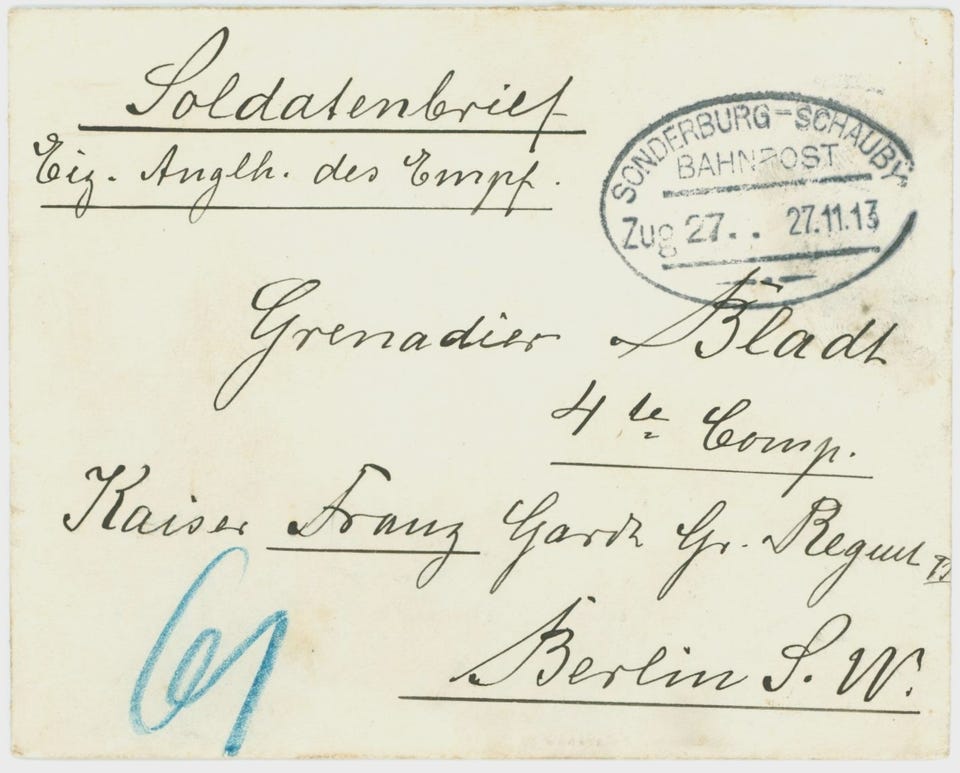 Soldatenbrief
Eig. Anglh. des Empf.
SONDERBURG-SCHAUBY
BAHNPOST
Zug 27.. 27.11.13
Grenadier Bladt
4te Comp.
Kaiser Franz Garde Gr. Regmt
Berlin S. W.
61